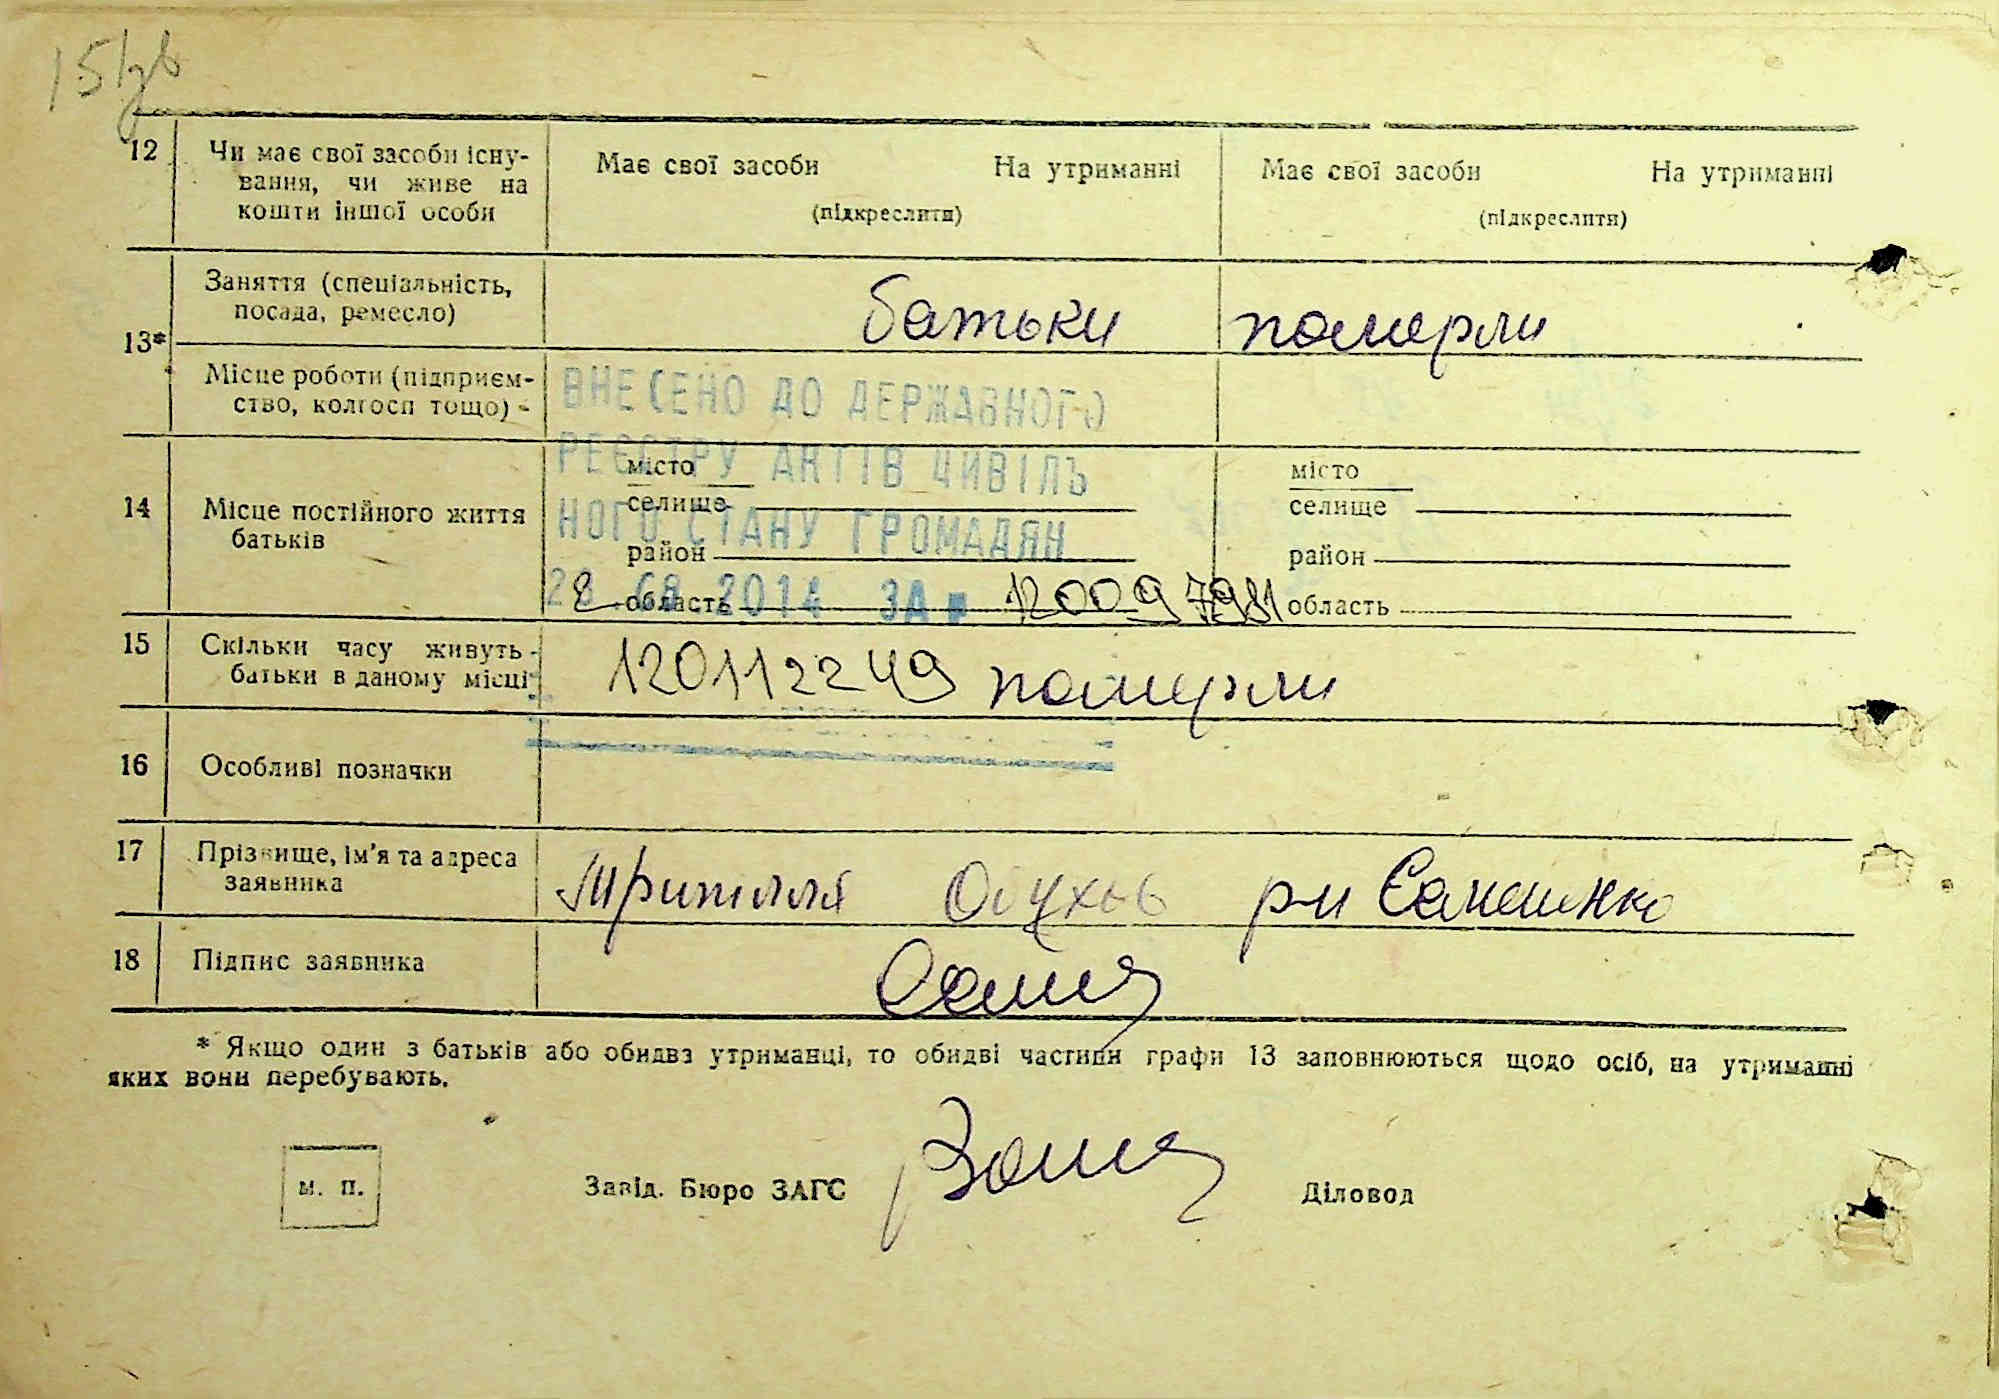 15
12 Чи має свої засоби існу-
вання, чи живе на
кошти іншої особи
Має свої засоби На утриманні
(підкреслити)
Має свої засоби На утриманні
(підкреслити)
13*
Заняття (спеціальність,
посада, ремесло)
батьки померли
Місце роботи (підприєм-
ство, колгосп тощо)
ВНЕСЕНО ДО ДЕРЖАВНОГО
РЕЄСТРУ АКТІВ ЦИВІЛЬ
НОГО СТАНУ ГРОМАДЯН
2014 ЗА № 120097981
14 Місце постійного життя
батьків
місто
селище
район
область
місто
селище
район
область
15 Скільки часу живуть
батьки в даному місці
120112249 померли
16 Особливі позначки
17 Прізвище, ім'я та адреса
заявника
Трипілля Обухів р-н Семененко
18 Підпис заявника
* Якщо один з батьків або обидва утриманці, то обидві частини графи 13 заповнюються щодо осіб, на утриманні
яких вони перебувають.
м. п.
Завід. Бюро ЗАГС
Діловод